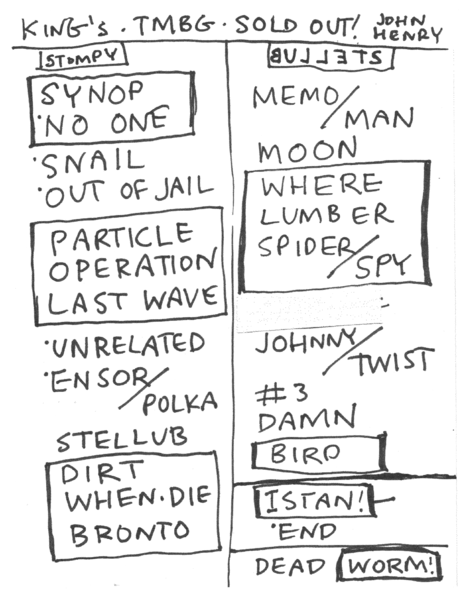 KING's · TMBG · SOLD OUT! JOHN HENRY
STOMPY
SYNOP
·NO ONE
·SNAIL
·OUT OF JAIL
PARTICLE
OPERATION
LAST WAVE
·UNRELATED
·ENSOR/
POLKA
STELLUB
DIRT
WHEN·DIE
BRONTO
STELLUB
MEMO/
MAN
MOON
WHERE
LUMBER
SPIDER/
SPY
JOHNNY/
TWIST
#3
DAMN
BIRD
ISTAN!
·END
DEAD WORM!